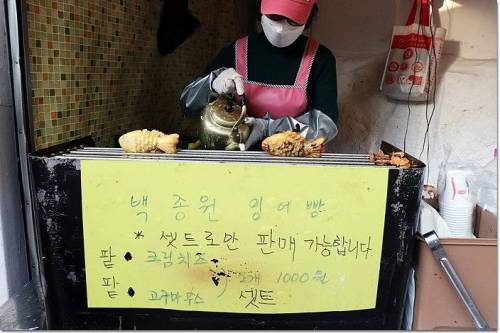 백종원 잉어빵
* 셋트로만 판매 가능합니다
팥 크림치즈
2개 1000원
팥 고구마무스 셋트